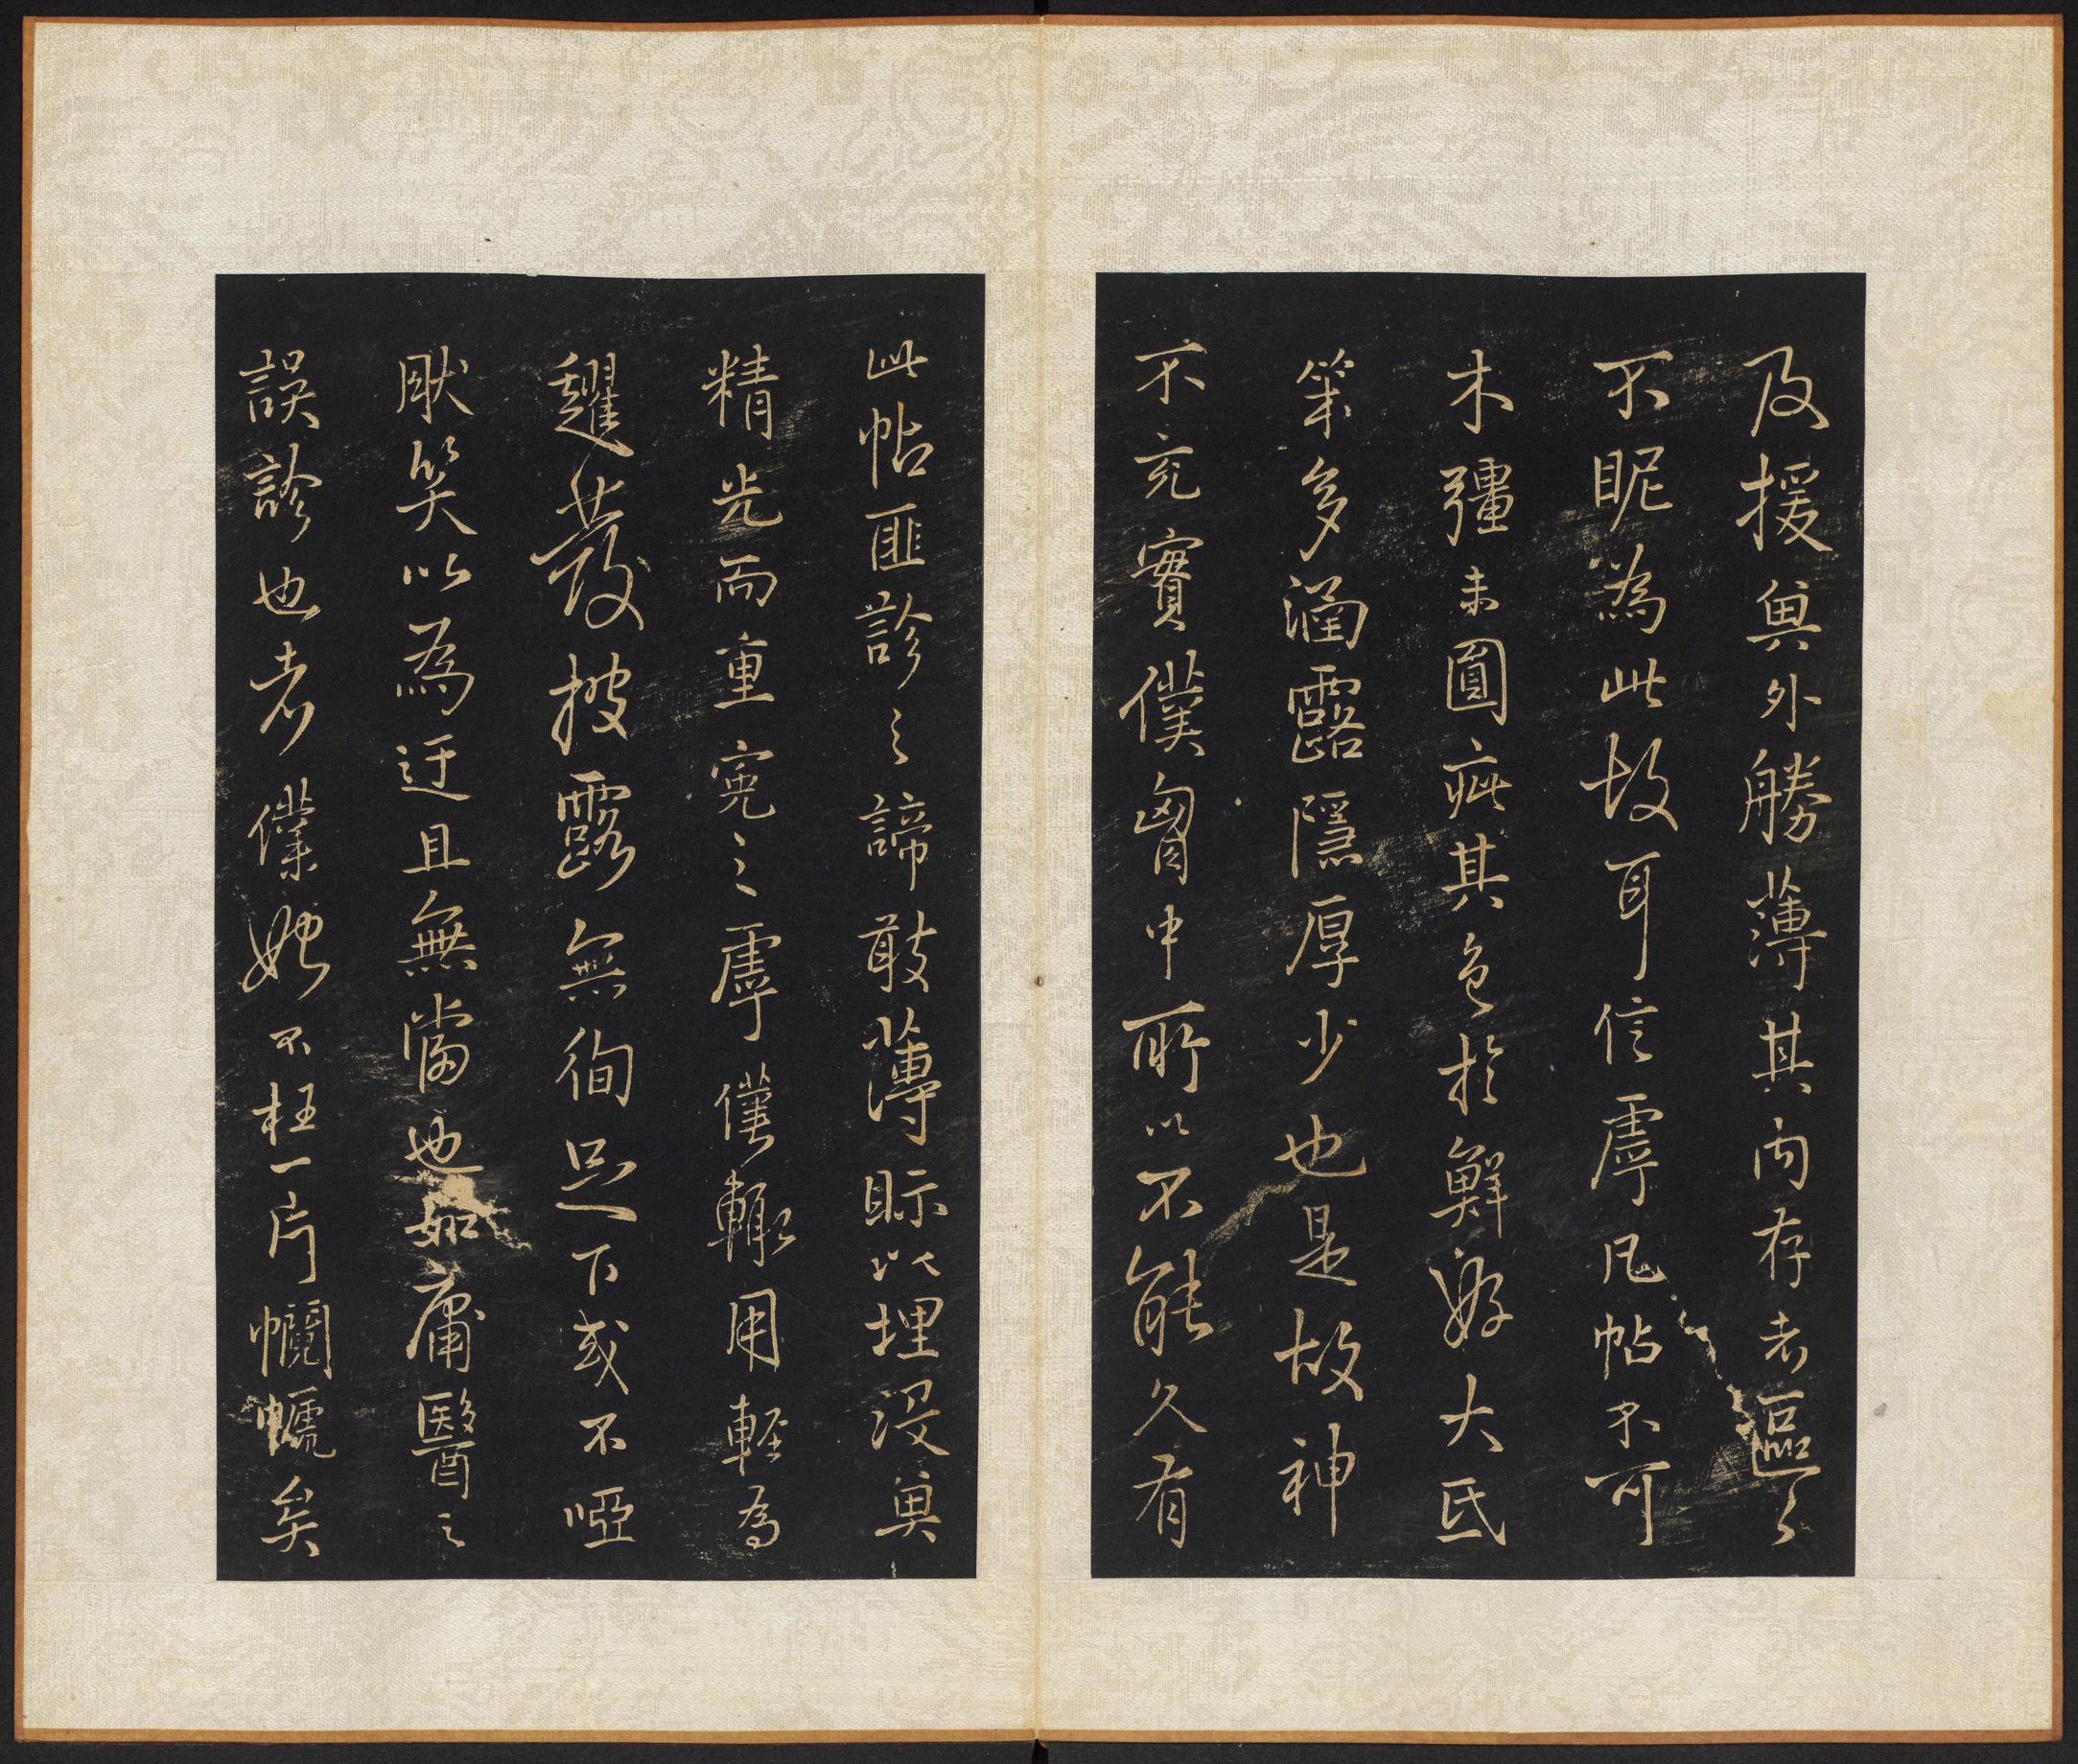 及援與外勝薄其内存者區〻
不昵為此故耳信虖凡帖不可
木彊未圓疵其色於鮮好大氐
筆多涵露隱厚少也是故神
不充實僕匈中所以不能久有
此帖匪診之諦敢薄眎以埋没其
精光而重冤之虖僅輙用輕為
趯發披露無徇足下或不啞
肰笑以為迂且無當也如庸醫之
誤診也者僕始不枉一片
矣